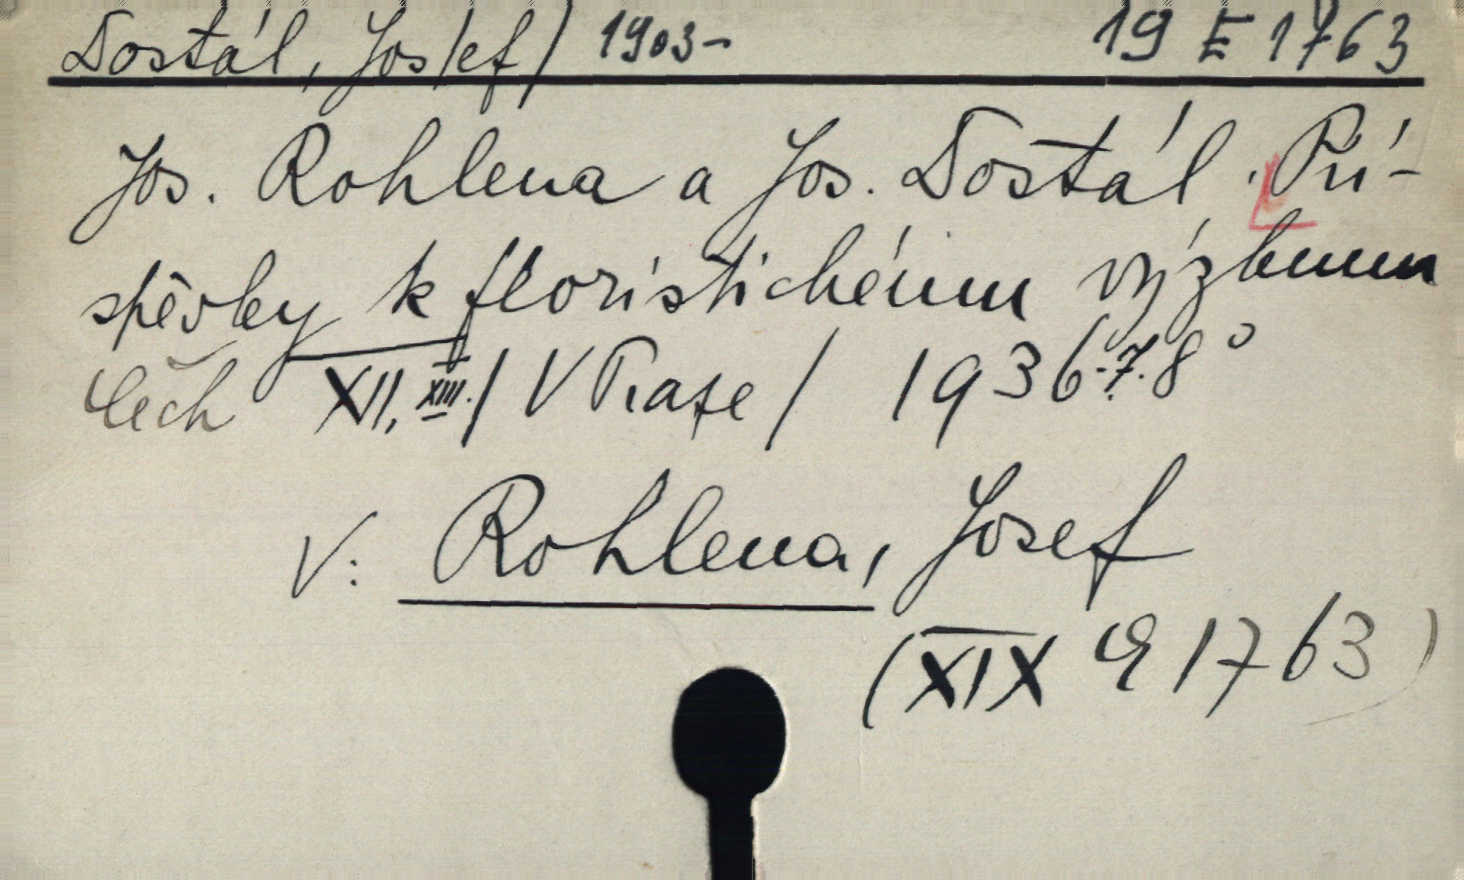 Dostál, Jos/ef/ 1903- 19 E 1763
Jos. Rohlena a Jos. Dostál. Pří-
spěvky k floristickému výzkumu
Čech XII, XIII./ V Praze/ 1936-7. 8°
V: Rohlena, Josef
(XIX E 1763)